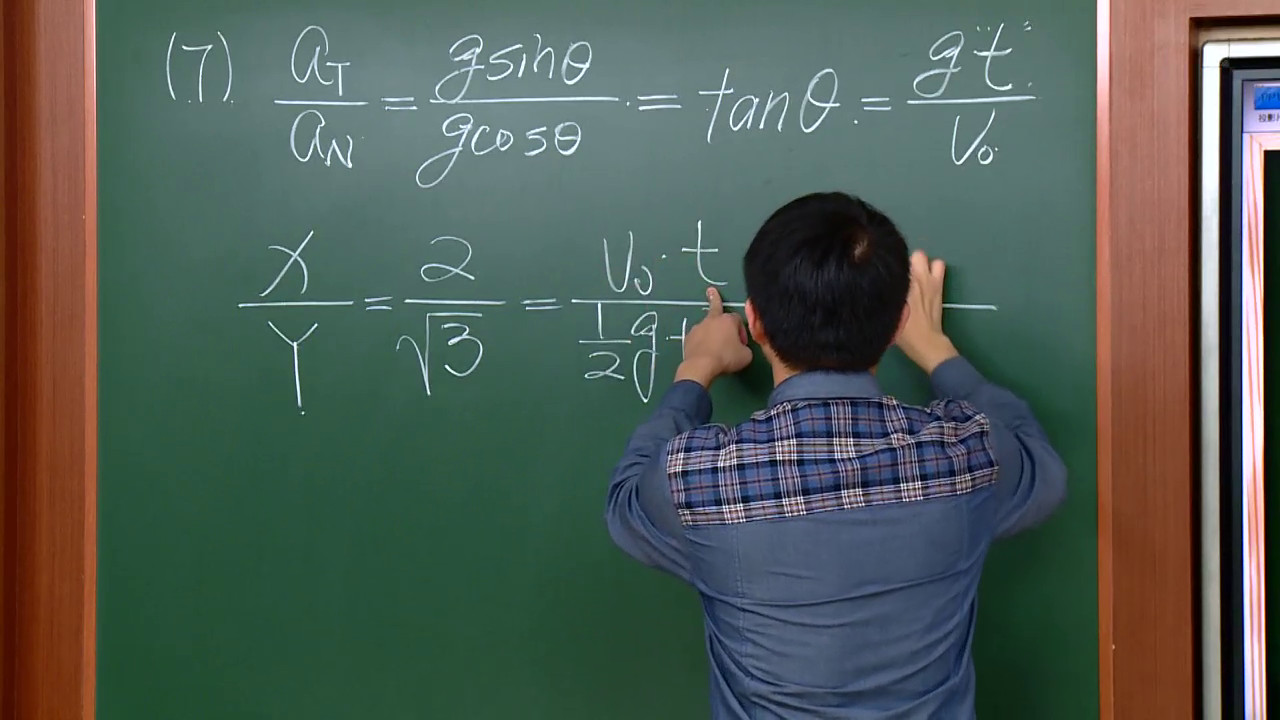 (7) a_T / a_N = g sinθ / g cosθ = tanθ = g"t" / V₀
X / Y = 2 / √3 = V₀·t / ½g·t